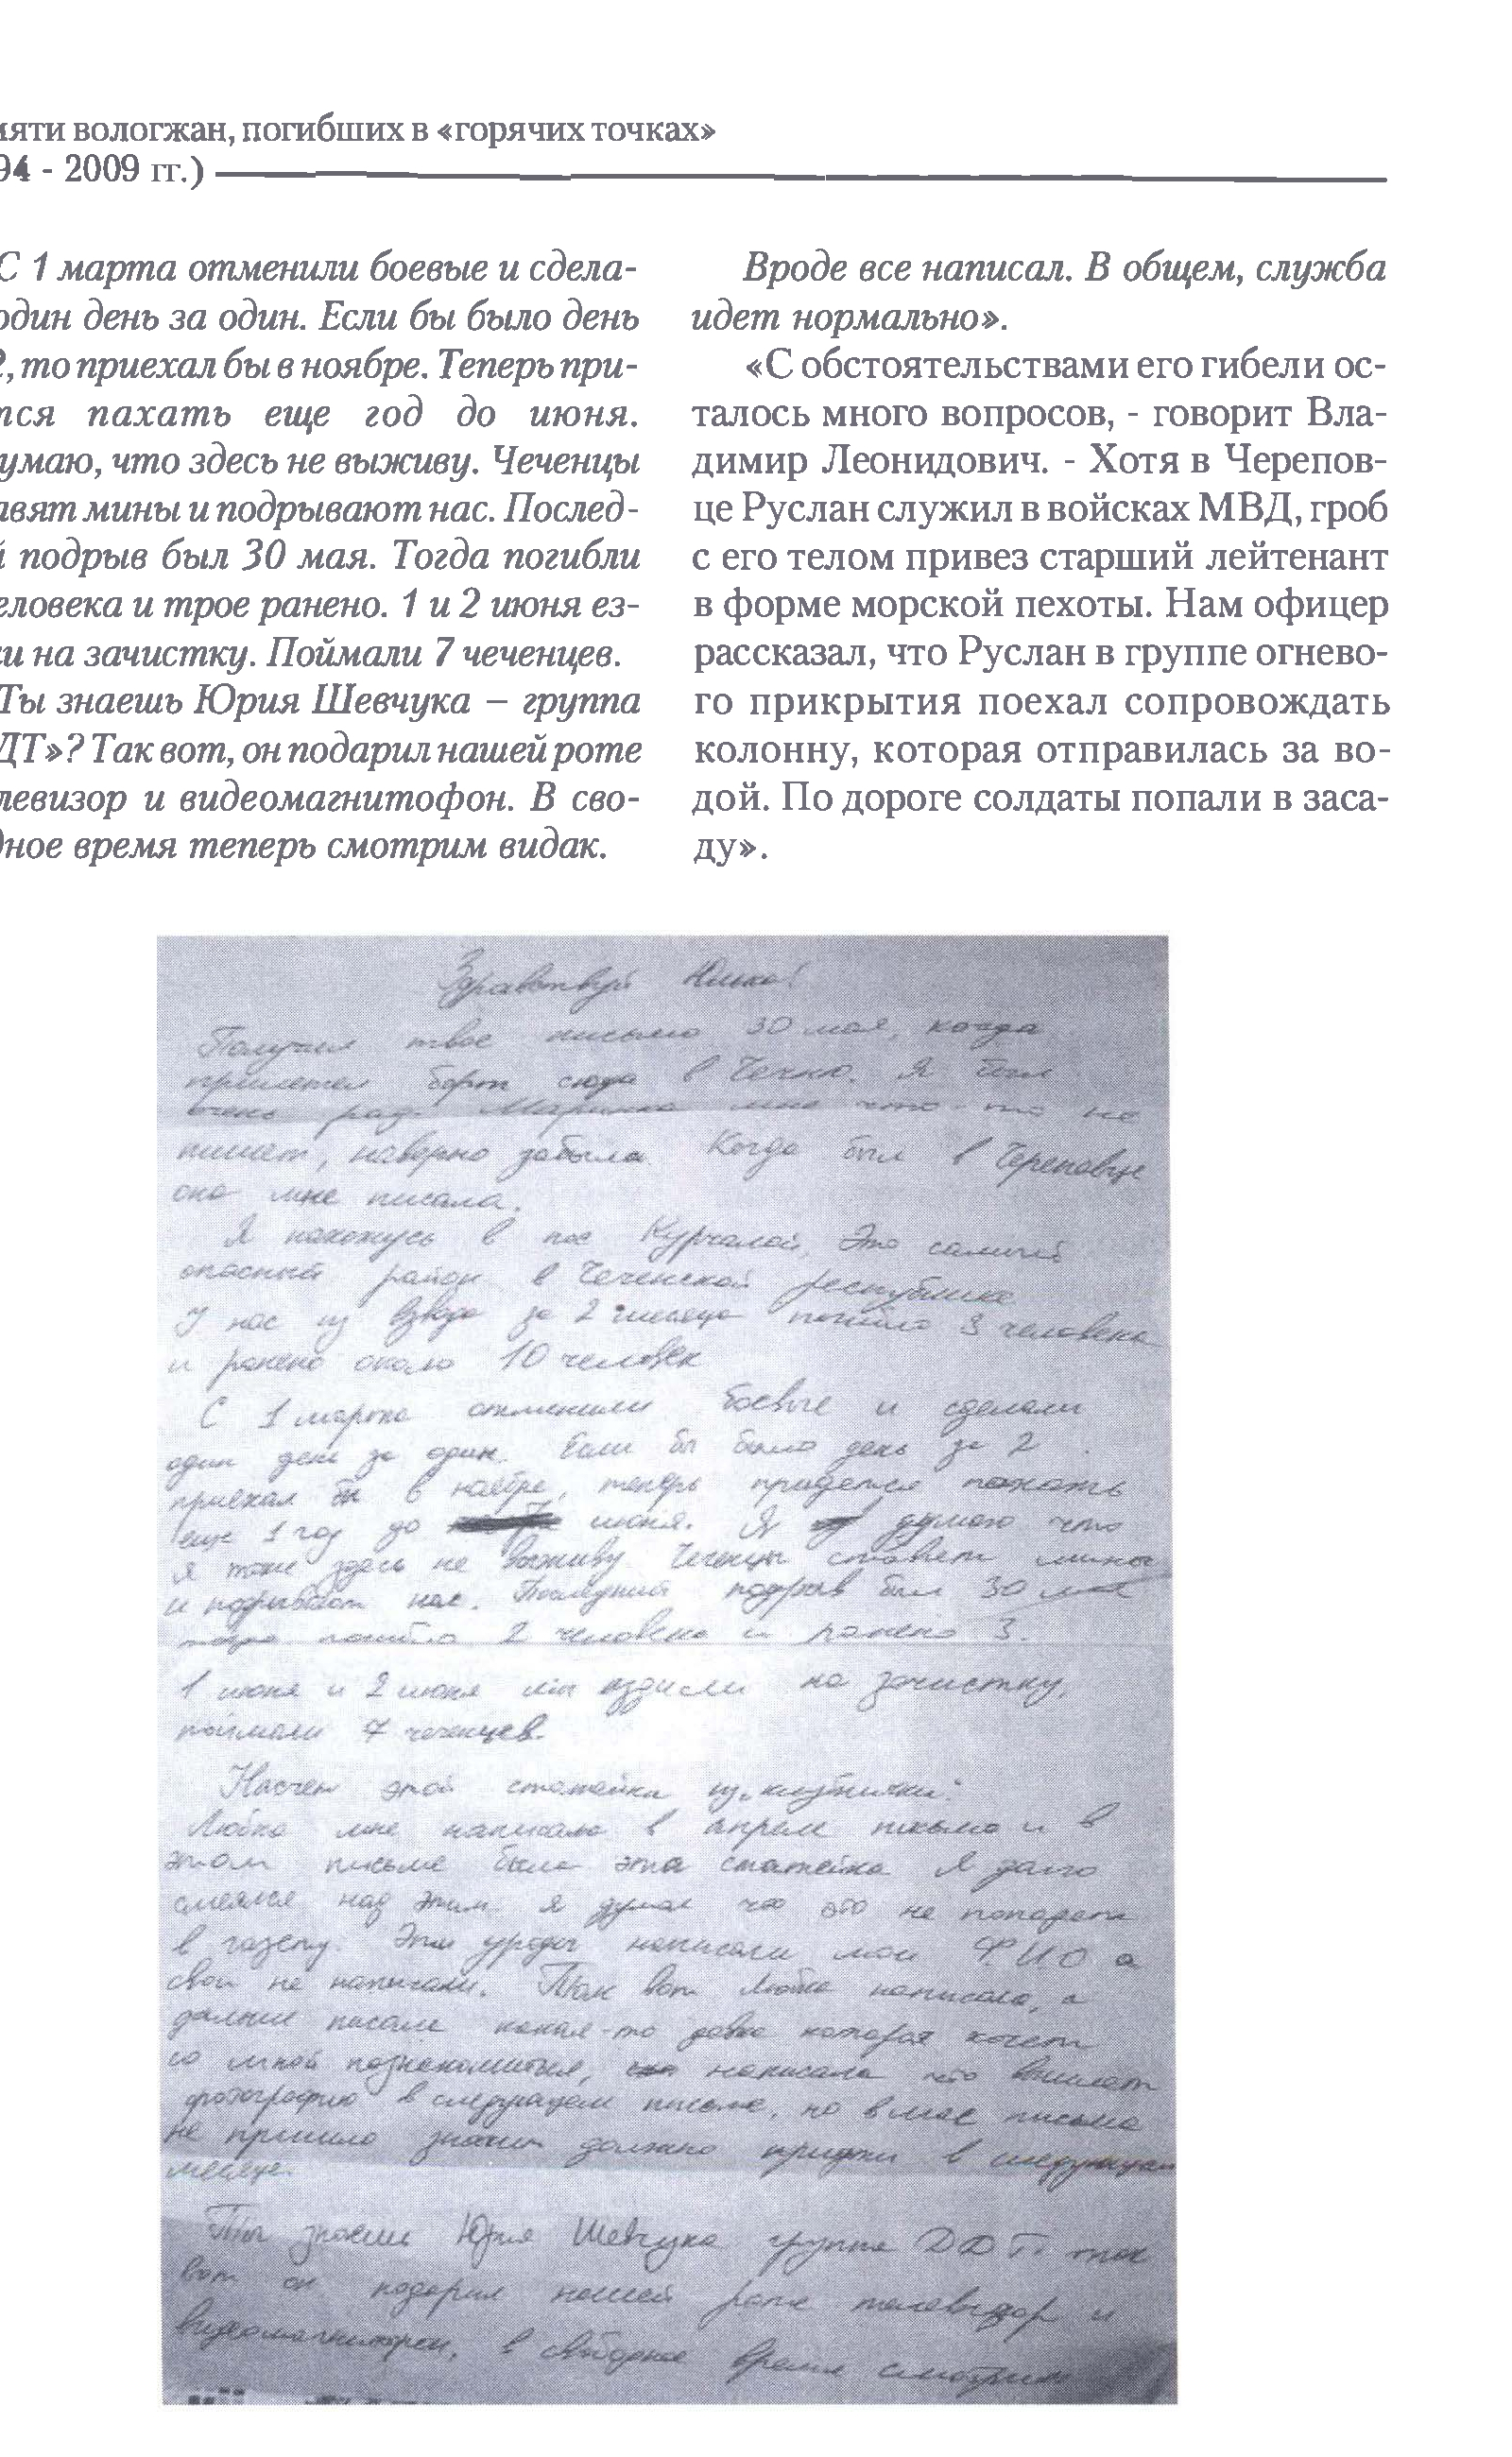 мяти вологжан, погибших в «горячих точках»
94 - 2009 гг.)
С 1 марта отменили боевые и сдела-
один день за один. Если бы было день
2, то приехал бы в ноябре. Теперь при-
тся пахать еще год до июня.
умаю, что здесь не выживу. Чеченцы
авят мины и подрывают нас. Послед-
й подрыв был 30 мая. Тогда погибли
еловека и трое ранено. 1 и 2 июня ез-
и на зачистку. Поймали 7 чеченцев.
Ты знаешь Юрия Шевчука – группа
ДТ»? Так вот, он подарил нашей роте
левизор и видеомагнитофон. В сво-
дное время теперь смотрим видак.
Вроде все написал. В общем, служба
идет нормально».
«С обстоятельствами его гибели ос-
талось много вопросов, - говорит Вла-
димир Леонидович. - Хотя в Черепов-
це Руслан служил в войсках МВД, гроб
с его телом привез старший лейтенант
в форме морской пехоты. Нам офицер
рассказал, что Руслан в группе огнево-
го прикрытия поехал сопровождать
колонну, которая отправилась за во-
дой. По дороге солдаты попали в заса-
ду».
Здравствуй Юлька!
Получил твое письмо 30 мая, когда
прилетел борт сюда в Чечню. Я был
очень рад. Маринка мне что-то не
пишет, наверно забыла. Когда был в Череповце
она мне писала.
Я нахожусь в пос Курчалой, Это самый
опасный район в Чеченской республике
У нас из взвода за 2 месяца погибло 3 человека
и ранено около 10 человек
С 1 марта отменили боевые и сделали
один день за один. Если бы было день за 2
приехал бы в ноябре, теперь придется пахать
еще 1 год до июня. Я думаю что
я тоже здесь не выживу. Чеченцы ставят мины
и подрывают нас. Последний подрыв был 30 мая
тогда погибло 2 человека и ранено 3.
1 июня и 2 июня мы ездили на зачистку,
поймали 7 чеченцев.
Насчет этой статейки из „клубнички"
Любка мне написала в апреле письмо и в
этом письме была эта статейка Я долго
смеялся над этим я думал что это не попадет
в газету. Эти уроды написали мои Ф.И.О а
свои не написали. Так вот Любка написала, а
дальше писала какая-то девка которая хочет
со мной познакомиться, написала что вышлет
фотографию в следующем письме, но в мае письмо
не пришло значит должно придти в следующем
месяце.
Ты знаешь Юрия Шевчука группа ДДТ. так
вот он подарил нашей роте телевизор и
видеомагнитофон, в свободное время смотрим